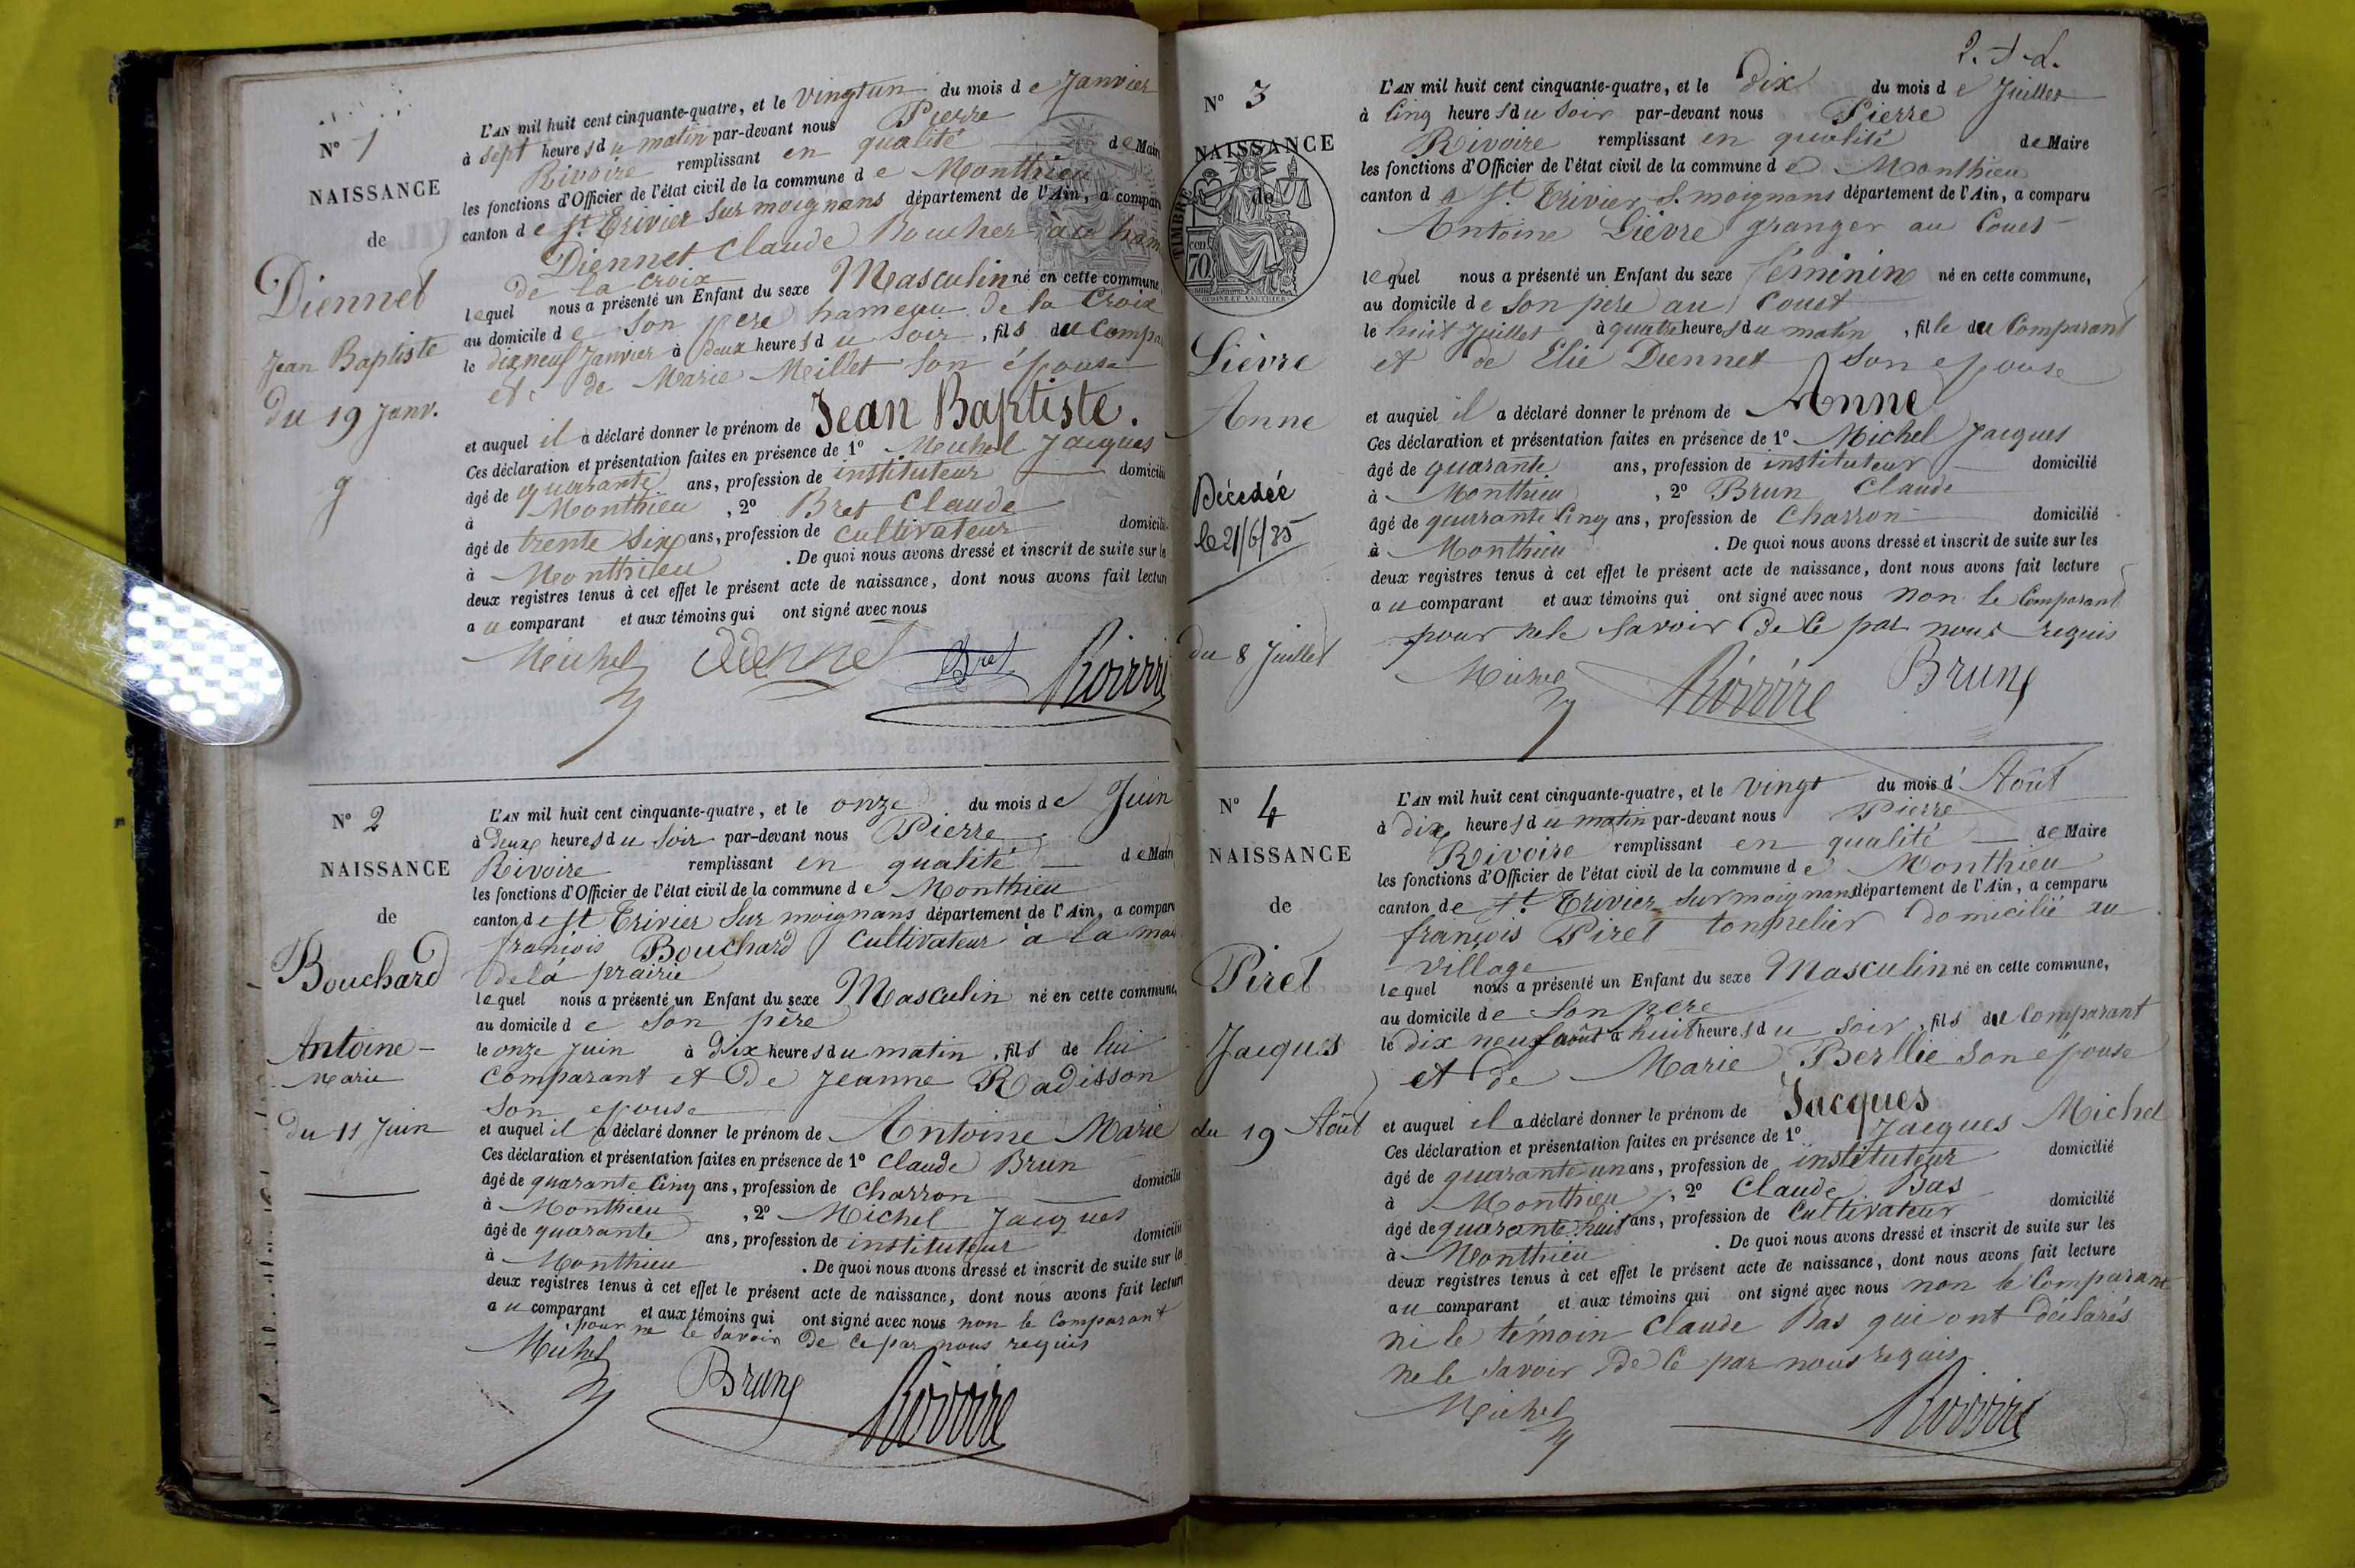 N° 1
NAISSANCE
de
Diennet
Jean Baptiste
du 19 Janv.
L'AN mil huit cent cinquante-quatre, et le vingtun du mois de Janvier
à sept heures du matin par-devant nous Pierre
Rivoire remplissant en qualité de Mair
les fonctions d'Officier de l'état civil de la commune de Monthieu
canton de St. Trivier Sur moignans département de l'Ain, a compar
Diennet Claude Boucher au ham
de la Croix
lequel nous a présenté un Enfant du sexe Masculin né en cette commune,
au domicile de son père hameau de la Croix
le dixneuf Janvier à deux heures du soir, fils du Compa
et de Marie Millet son épouse
et auquel il a déclaré donner le prénom de Jean Baptiste.
Ces déclaration et présentation faites en présence de 1° Michel Jacques
âgé de quarante ans, profession de instituteur domicilié
à Monthieu, 2° Bret Claude
âgé de trente six ans, profession de cultivateur domicili
à Monthieu. De quoi nous avons dressé et inscrit de suite sur le
deux registres tenus à cet effet le présent acte de naissance, dont nous avons fait lectur
au comparant et aux témoins qui ont signé avec nous
Michel Diennet Bret Rivoire
N° 2
NAISSANCE
de
Bouchard
Antoine-
Marie
du 11 Juin
L'AN mil huit cent cinquante-quatre, et le onze du mois de Juin
à deux heures du soir par-devant nous Pierre
Rivoire remplissant en qualité de Mair
les fonctions d'Officier de l'état civil de la commune de Monthieu
canton de St Trivier Sur moignans département de l'Ain, a compar
françois Bouchard Cultivateur à la mai
de la prairie
lequel nous a présenté un Enfant du sexe Masculin né en cette commune,
au domicile de son père
le onze juin à dix heures du matin, fils de lui
comparant et de Jeanne Radisson
son epouse
et auquel il a déclaré donner le prénom de Antoine Marie
Ces déclaration et présentation faites en présence de 1° Claude Brun
âgé de quarante cinq ans, profession de Charron domicilié
à Monthieu, 2° Michel Jacques
âgé de quarante ans, profession de instituteur domicilié
à Monthieu. De quoi nous avons dressé et inscrit de suite sur les
deux registres tenus à cet effet le présent acte de naissance, dont nous avons fait lecture
au comparant et aux témoins qui ont signé avec nous non le Comparant
pour ne le savoir de ce par nous requis
Michel Brun Rivoire
N° 3
NAISSANCE
de
TIMBRE
70
Lièvre
Anne
Décédée
le 21/6/35
du 8 Juillet
L'AN mil huit cent cinquante-quatre, et le dix du mois de Juillet
à Cinq heures du soir par-devant nous Pierre
Rivoire remplissant en qualité de Maire
les fonctions d'Officier de l'état civil de la commune de Monthieu
canton de St. Trivier S. moignans département de l'Ain, a comparu
Antoine Lièvre granger au Couet
lequel nous a présenté un Enfant du sexe féminin né en cette commune,
au domicile de son père au Couet
le huit Juillet à quatre heures du matin, fille du Comparant
et de Elie Diennet son epouse
et auquel il a déclaré donner le prénom de Anne
Ces déclaration et présentation faites en présence de 1° Michel Jacques
âgé de quarante ans, profession de instituteur domicilié
à Monthieu, 2° Brun Claude
âgé de quarante Cinq ans, profession de Charron domicilié
à Monthieu. De quoi nous avons dressé et inscrit de suite sur les
deux registres tenus à cet effet le présent acte de naissance, dont nous avons fait lecture
au comparant et aux témoins qui ont signé avec nous non le Comparant
pour ne le savoir de ce par nous requis
Michel Rivoire Brun
N° 4
NAISSANCE
de
Piret
Jacques
du 19 Août
L'AN mil huit cent cinquante-quatre, et le vingt du mois d' Août
à dix heures du matin par-devant nous Pierre
Rivoire remplissant en qualité de Maire
les fonctions d'Officier de l'état civil de la commune de Monthieu
canton de St. Trivier sur moignans département de l'Ain, a comparu
françois Piret tonnelier domicilié au
village
lequel nous a présenté un Enfant du sexe Masculin né en cette commune,
au domicile de son pere
le dix neuf août à huit heures du soir, fils du Comparant
et de Marie Berllie son epouse
et auquel il a déclaré donner le prénom de Jacques
Ces déclaration et présentation faites en présence de 1° Jacques Michel
âgé de quarante un ans, profession de instituteur domicilié
à Monthieu, 2° Claude Bas
âgé de quarante huit ans, profession de Cultivateur domicilié
à Monthieu. De quoi nous avons dressé et inscrit de suite sur les
deux registres tenus à cet effet le présent acte de naissance, dont nous avons fait lecture
au comparant et aux témoins qui ont signé avec nous non le Comparant
ni le témoin Claude Bas qui ont déclarés
ne le savoir de ce par nous requis
Michel Rivoire